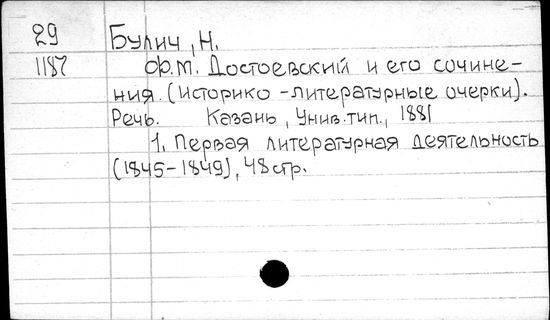 29 Булич, Н.
1187 Ф.М. Достоевский и его сочине-
ния. (историко-литературные очерки).
Речь. Казань, Унив. тип., 1881
1. Первая литературная деятельность
(1845-1849), 48 стр.